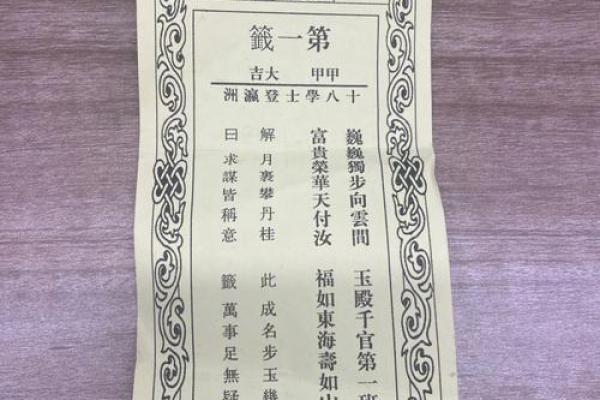 第一籤
甲甲 大吉
十八學士登瀛洲
巍巍獨步向雲間 玉殿千官第一班
富貴榮華天付汝 福如東海壽如山
解 月裏攀丹桂 此 成名步玉
曰 求謀皆稱意 籤 萬事足無疑